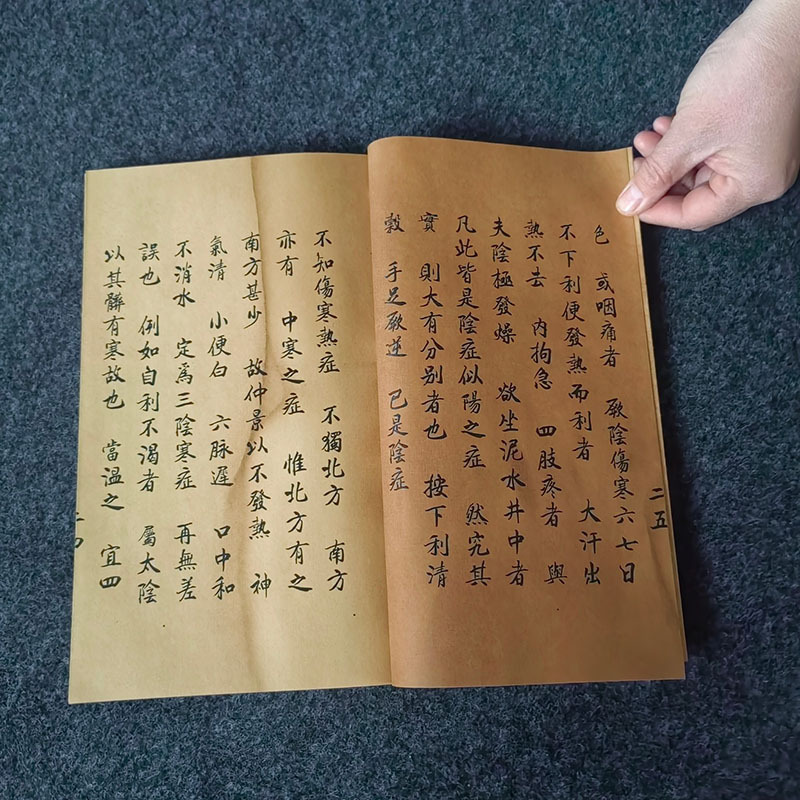 二五
色 或咽痛者 厥陰傷寒六七日
不下利便發熱而利者 大汗出
熱不去 內拘急 四肢疼者 與
夫陰極發燥 欲坐泥水井中者
凡此皆是陰症似陽之症 然究其
實 則大有分別者也 按下利清
穀 手足厥逆 已是陰症
不知傷寒熱症 不獨北方 南方
亦有 中寒之症 惟北方有之
南方甚少 故仲景以不發熱 神
氣清 小便白 六脈遲 口中和
不消水 定爲三陰寒症 再無差
誤也 例如自利不渴者 屬太陰
以其髒有寒故也 當溫之 宜四